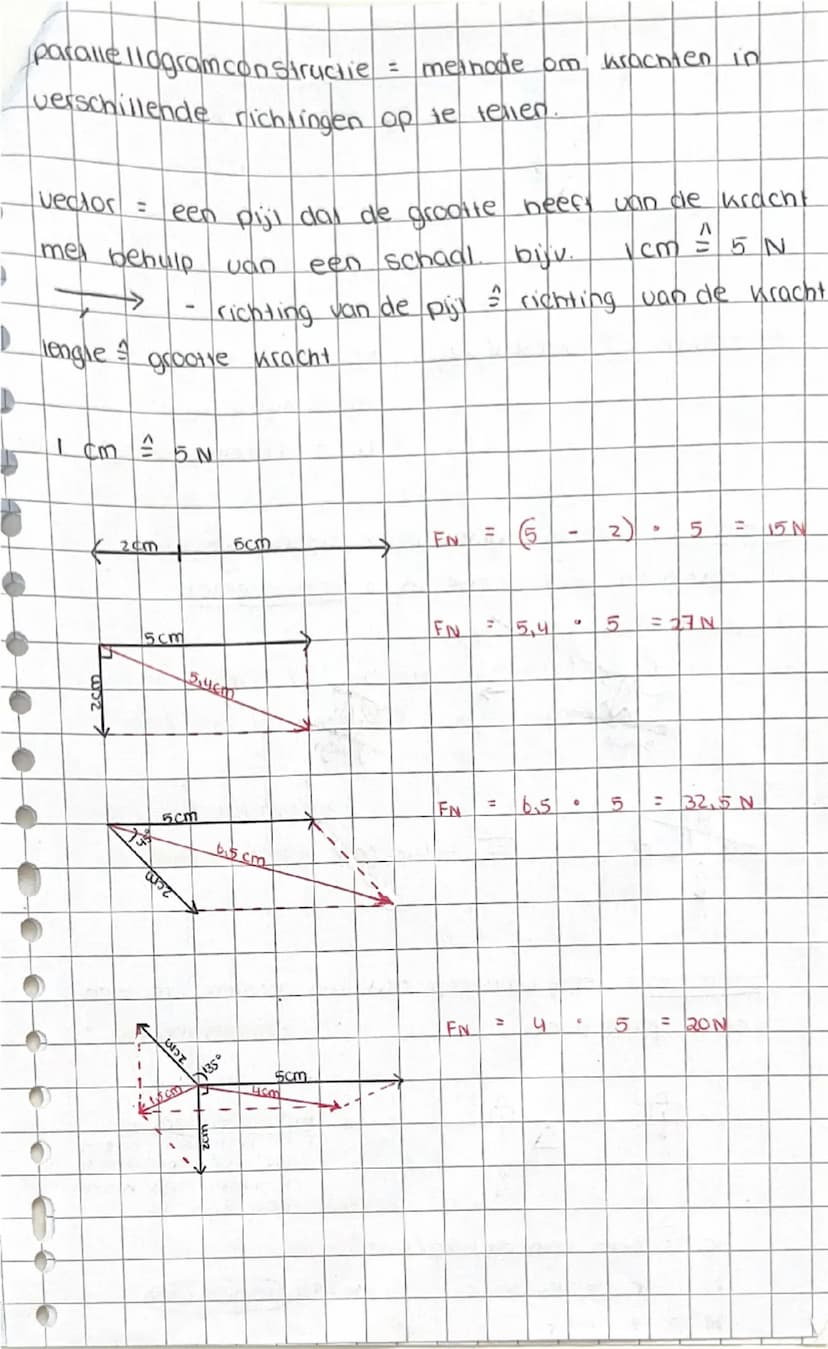 parallellogramconstructie = methode om krachten in
verschillende richtingen op te tellen.
vector = een pijl dat de grootte heeft van de kracht
met behulp van een schaal. bijv. 1cm ≙ 5 N
- richting van de pijl ≙ richting van de kracht
lengte ≙ grootte kracht
1 cm ≙ 5 N
2cm 5cm FN = (5 - 2) · 5 = 15 N
5cm FN = 5,4 · 5 = 27 N
5,4cm
2cm
5cm FN = 6,5 · 5 = 32,5 N
6,5 cm
2cm
FN = 4 · 5 = 20N
2cm 135°
5cm
1,5cm 4cm
2cm